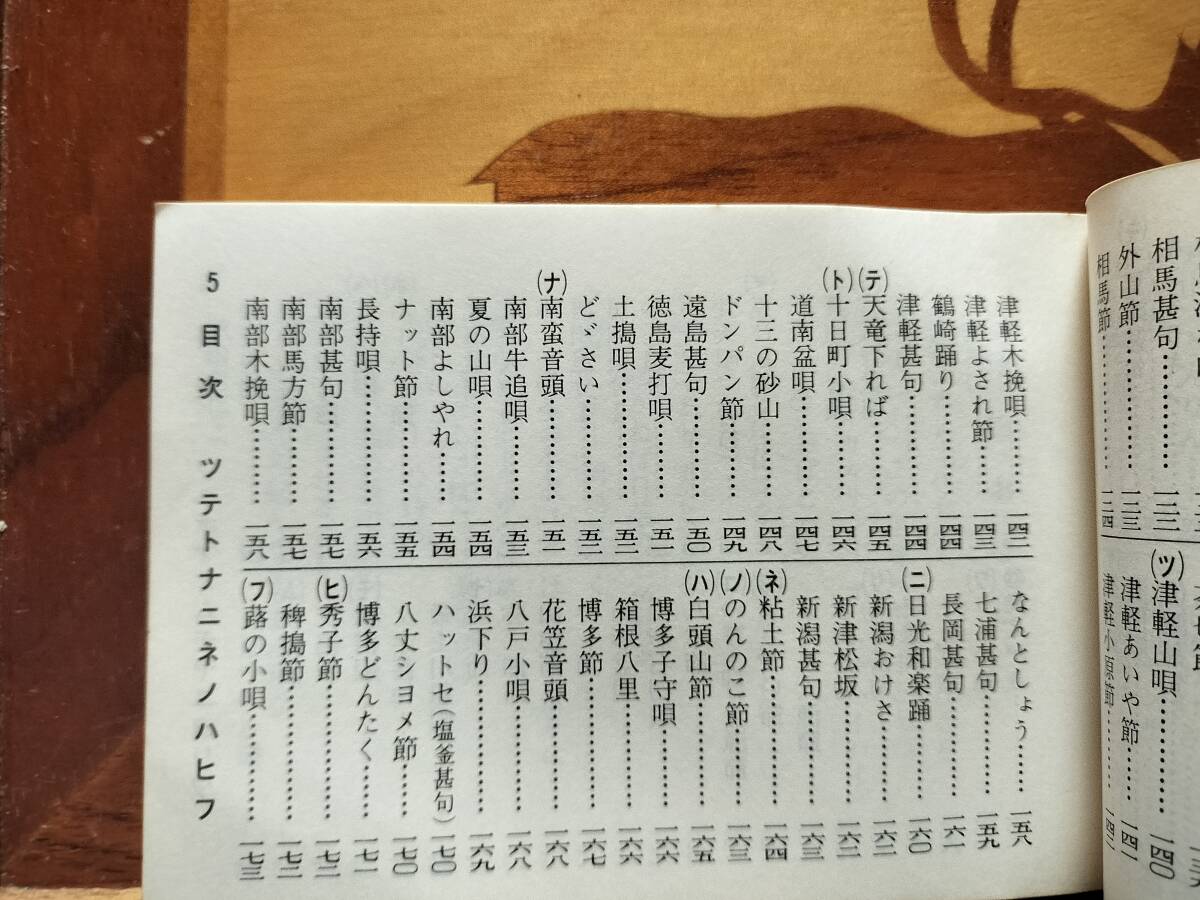 相馬甚句…………一三三
外山節…………一三三
相馬節…………一三四
(ツ)津軽山唄…………一四〇
津軽あいや節……一四一
津軽小原節………一四二
津軽木挽唄………一四二
津軽よされ節……一四三
鶴崎踊り…………一四四
津軽甚句…………一四四
(テ)天竜下れば………一四五
(ト)十日町小唄………一四六
道南盆唄…………一四七
十三の砂山………一四八
ドンパン節………一四九
遠島甚句…………一五〇
徳島麦打唄………一五一
土搗唄……………一五二
どゞさい…………一五二
(ナ)南蛮音頭…………一五一
南部牛追唄………一五三
夏の山唄…………一五四
南部よしやれ……一五四
ナット節…………一五五
長持唄……………一五六
南部甚句…………一五七
南部馬方節………一五七
南部木挽唄………一五八
なんとしょう……一五八
七浦甚句…………一五九
長岡甚句…………一六一
(ニ)日光和楽踊………一六〇
新潟おけさ………一六二
新津松坂…………一六二
新潟甚句…………一六三
(ネ)粘土節……………一六四
(ノ)のんのこ節………一六三
(ハ)白頭山節…………一六五
博多子守唄………一六六
箱根八里…………一六六
博多節……………一六七
花笠音頭…………一六八
八戸小唄…………一六八
浜下り……………一六九
ハットセ(塩釜甚句)一七〇
八丈シヨメ節……一七〇
博多どんたく……一七一
(ヒ)秀子節……………一七二
稗搗節……………一七二
(フ)蕗の小唄…………一七三
5 目次 ツテトナニネノハヒフ